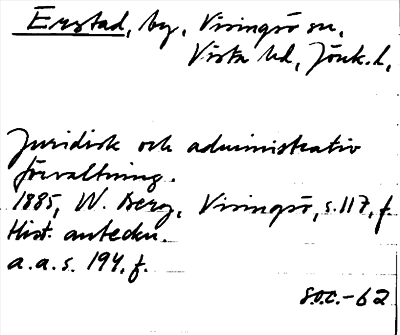 Erstad, by, Visingsö sn,
Vista hd, Jönk. l,
Juridisk och administrativ
förvaltning.
1885, W. Berg, Visingsö, s. 117, f.
Hist. anteckn.
a.a.s. 194, f.
s.o.c.-62